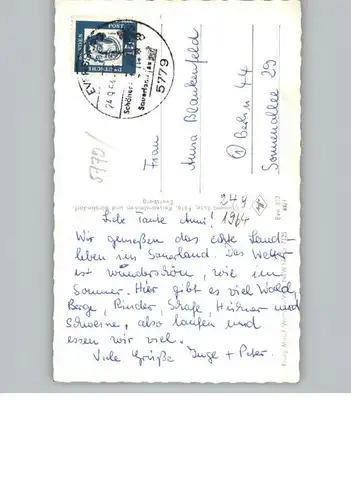 Liebe Tante Anni!
Wir genießen das echte Land-
leben im Sauerland. Das Wetter
ist wunderschön, wie im
Sommer. Hier gibt es viel Wald,
Berge, Rinder, Schafe, Hühner und
Schweine, also laufen und
essen wir viel.
Viele Grüße Inge + Peter.
24 9
1964
Frau
Anna Blankenfeld
1 Berlin 44
Sonnenallee 29
5779
DEUTSCHE
BUNDES
POST
15
5779/